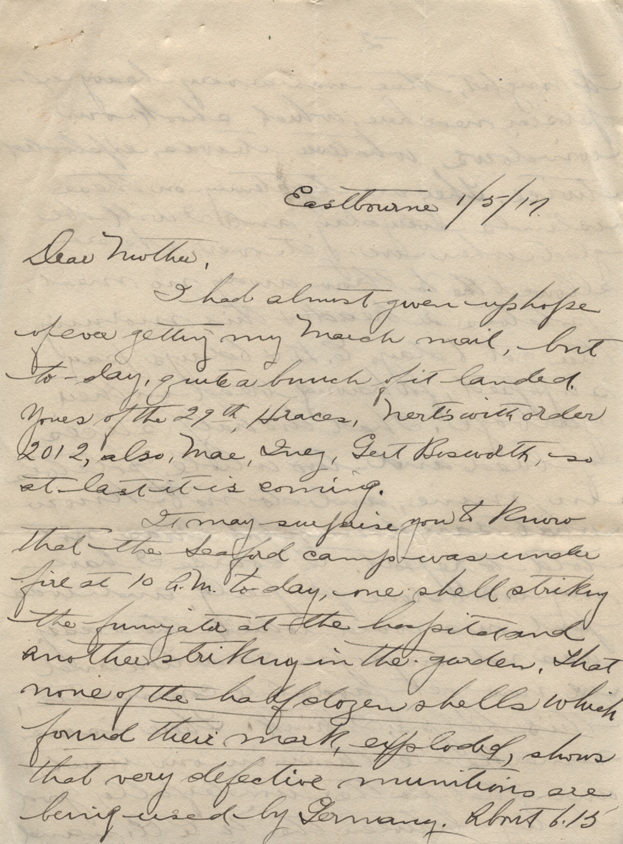 Eastbourne 1/5/17.
Dear Mother,
I had almost given up hope
of ever getting my March mail, but
to-day, quite a bunch of it landed.
Yours of the 29th, Horaces, Nert's with order
2012, also, Mae, Inez, Gert Bosworth, so
at last it is coming.
It may surprise you to know
that the Seaford camp was under
fire at 10 A.M. to-day, one shell striking
the fumigator at the hospital and
another striking in the garden. That
none of the half dozen shells which
found their mark, exploded, shows
that very defective munitions are
being used by Germany. About 6.15